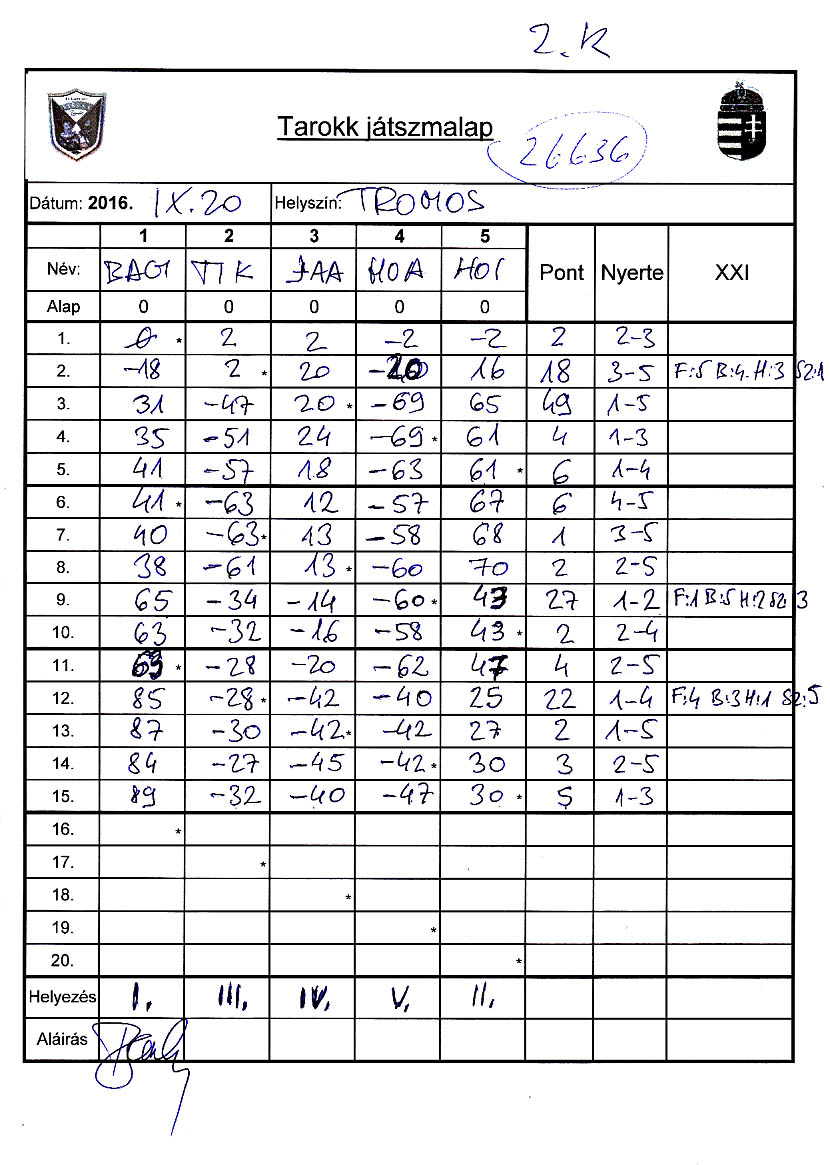 2. K
Tarokk játszmalap 26636
Dátum: 2016. IX.20 Helyszín: TROMOS
1 2 3 4 5
Név: BAGI TIK JAA MOA HOI Pont Nyerte XXI
Alap 0 0 0 0 0
1. 0 * 2 2 -2 -2 2 2-3
2. -18 2 * 20 -20 16 18 3-5 F:5 B:4 H:3 SZ:1
3. 31 -47 20 * -69 65 49 1-5
4. 35 -51 24 -69 * 61 4 1-3
5. 41 -57 18 -63 61 * 6 1-4
6. 41 * -63 12 -57 67 6 4-5
7. 40 -63 * 13 -58 68 1 3-5
8. 38 -61 13 * -60 70 2 2-5
9. 65 -34 -14 -60 * 43 27 1-2 F:1 B:5 H:2 SZ:3
10. 63 -32 -16 -58 43 * 2 2-4
11. 63 * -28 -20 -62 47 4 2-5
12. 85 -28 * -42 -40 25 22 1-4 F:4 B:3 H:1 SZ:5
13. 87 -30 -42 * -42 27 2 1-5
14. 84 -27 -45 -42 * 30 3 2-5
15. 89 -32 -40 -47 30 * 5 1-3
16. *
17. *
18. *
19. *
20. *
Helyezés I. III. IV. V. II.
Aláírás